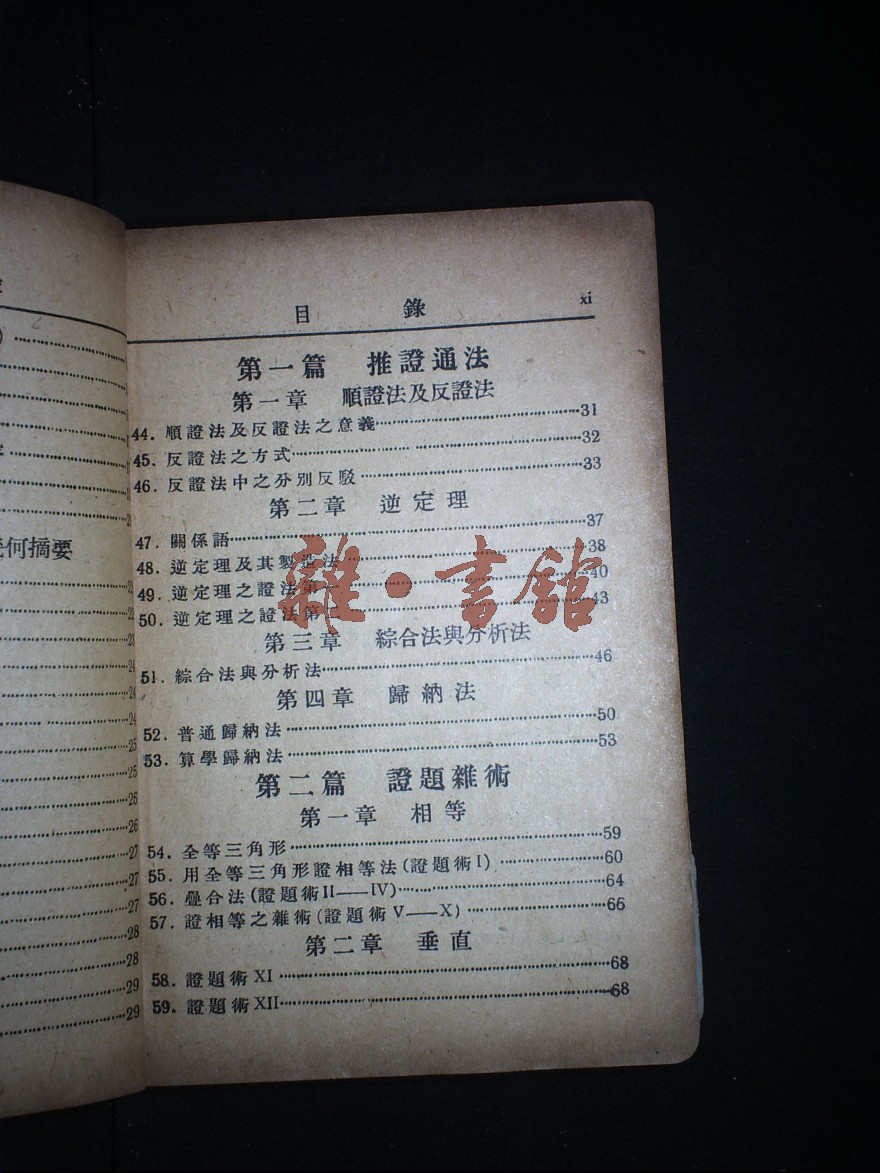 何摘要
21
22
23
24
24
24
25
25
26
26
27
27
27
28
28
29
29
目 錄 xi
第一篇 推證通法
第一章 順證法及反證法
44. 順證法及反證法之意義 31
45. 反證法之方式 32
46. 反證法中之分別反駁 33
第二章 逆定理
47. 關係語 37
48. 逆定理及其製造法 38
49. 逆定理之證法第一 40
50. 逆定理之證法第二 43
第三章 綜合法與分析法
51. 綜合法與分析法 46
第四章 歸納法
52. 普通歸納法 50
53. 算學歸納法 53
第二篇 證題雜術
第一章 相等
54. 全等三角形 59
55. 用全等三角形證相等法(證題術I) 60
56. 疊合法(證題術II——IV) 64
57. 證相等之雜術(證題術V——X) 66
第二章 垂直
58. 證題術XI 68
59. 證題術XII 68
雜·書館